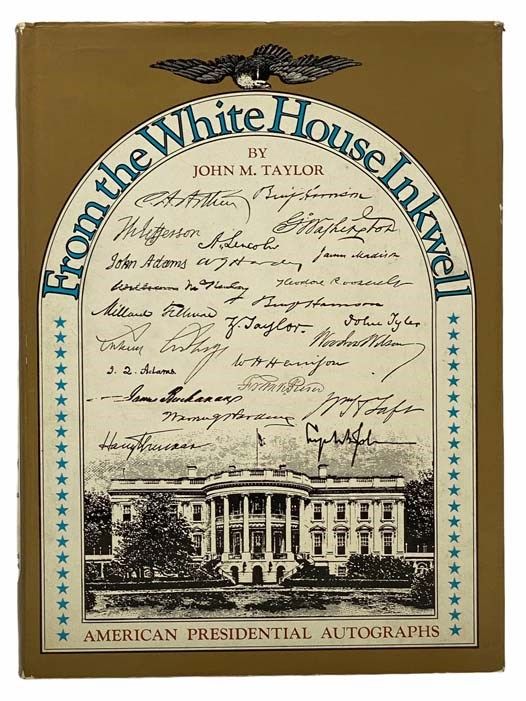 From the White House Inkwell
BY
JOHN M. TAYLOR
C. A. Arthur Benj Harrison
Th Jefferson G Washington
A. Lincoln
John Adams James Madison
William McKinley Theodore Roosevelt
Benj Harrison
Millard Fillmore Z. Taylor John Tyler
Woodrow Wilson
W H Harrison
J. Q. Adams
James Buchanan Wm H Taft
Warren G Harding
Harry Truman
AMERICAN PRESIDENTIAL AUTOGRAPHS